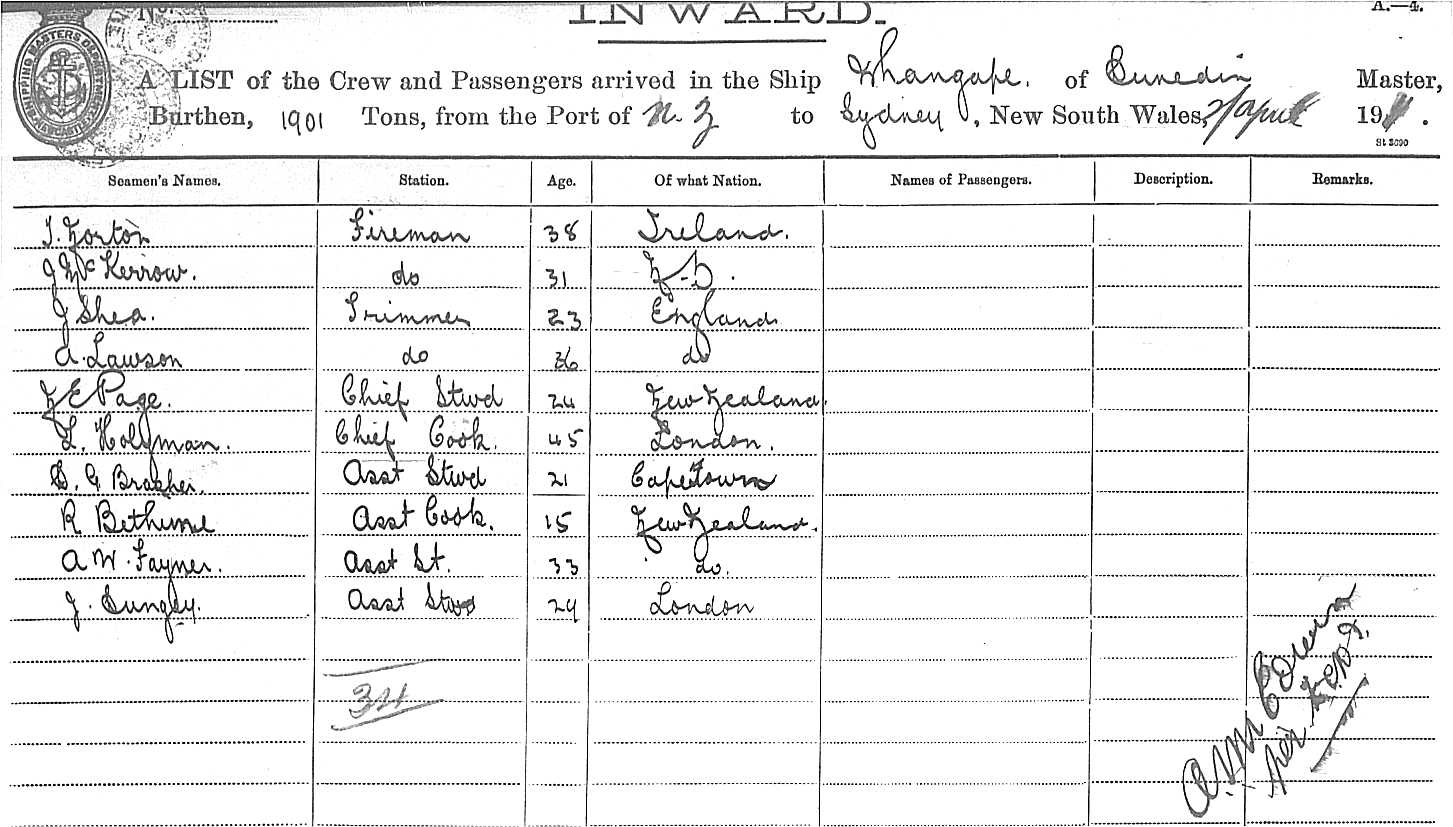 No.
INWARD.
A.—4.
SHIPPING MASTERS DEPARTMENT NEWCASTLE
A LIST of the Crew and Passengers arrived in the Ship Whangape. of Dunedin Master,
Burthen, 1901 Tons, from the Port of N. Z to Sydney, New South Wales, 21 April 19 .
St 3090
Seamen's Names. Station. Age. Of what Nation. Names of Passengers. Description. Remarks.
Fireman 38 Ireland.
J McKerrow. do 31
J Shea. Trimmer 23 England
A. Lawson do 36 do
Page. Chief Stwd 24 New Zealand.
L. Holyman. Chief Cook. 45 London.
G Brasher. Asst Stwd 21 Capetown
R Bethune Asst Cook. 15 New Zealand.
A W. Fayner. Asst St. 33 do.
J. Asst Stwd 24 London
34